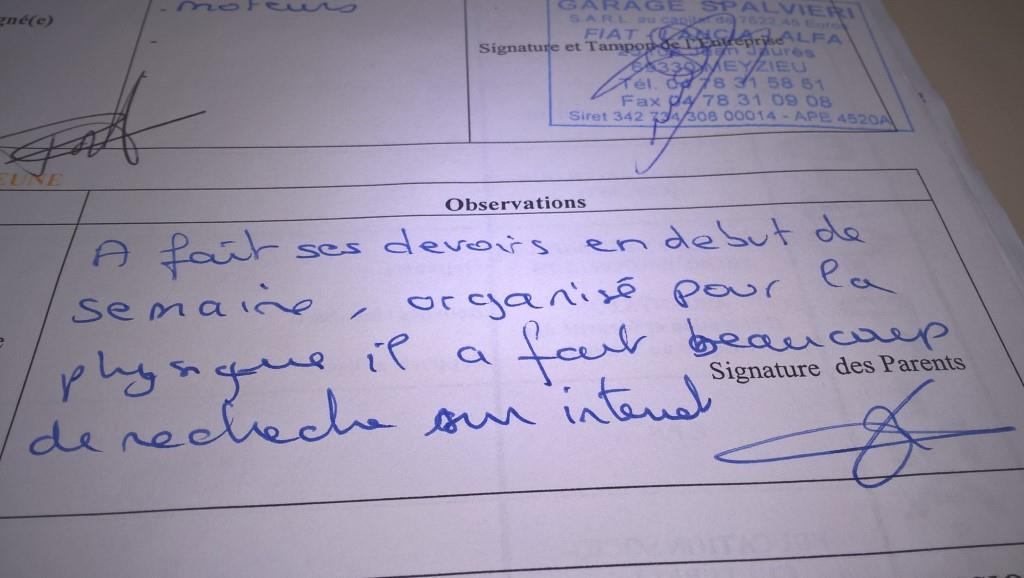 gné(e)
- moteurs
-
GARAGE SPALVIERI
S.A.R.L. au capital de 7622.45 Euros
FIAT LANCIA ALFA
Signature et Tampon de l'Entreprise
Jean Jaurès
69330 MEYZIEU
Tél. 04 78 31 58 51
Fax 04 78 31 09 08
Siret 342 734 308 00014 - APE 4520A
EUNE
Observations
A fait ses devoirs en debut de
semaine, organisé pour la
physique il a fait beaucoup
Signature des Parents
de recheche sur internet